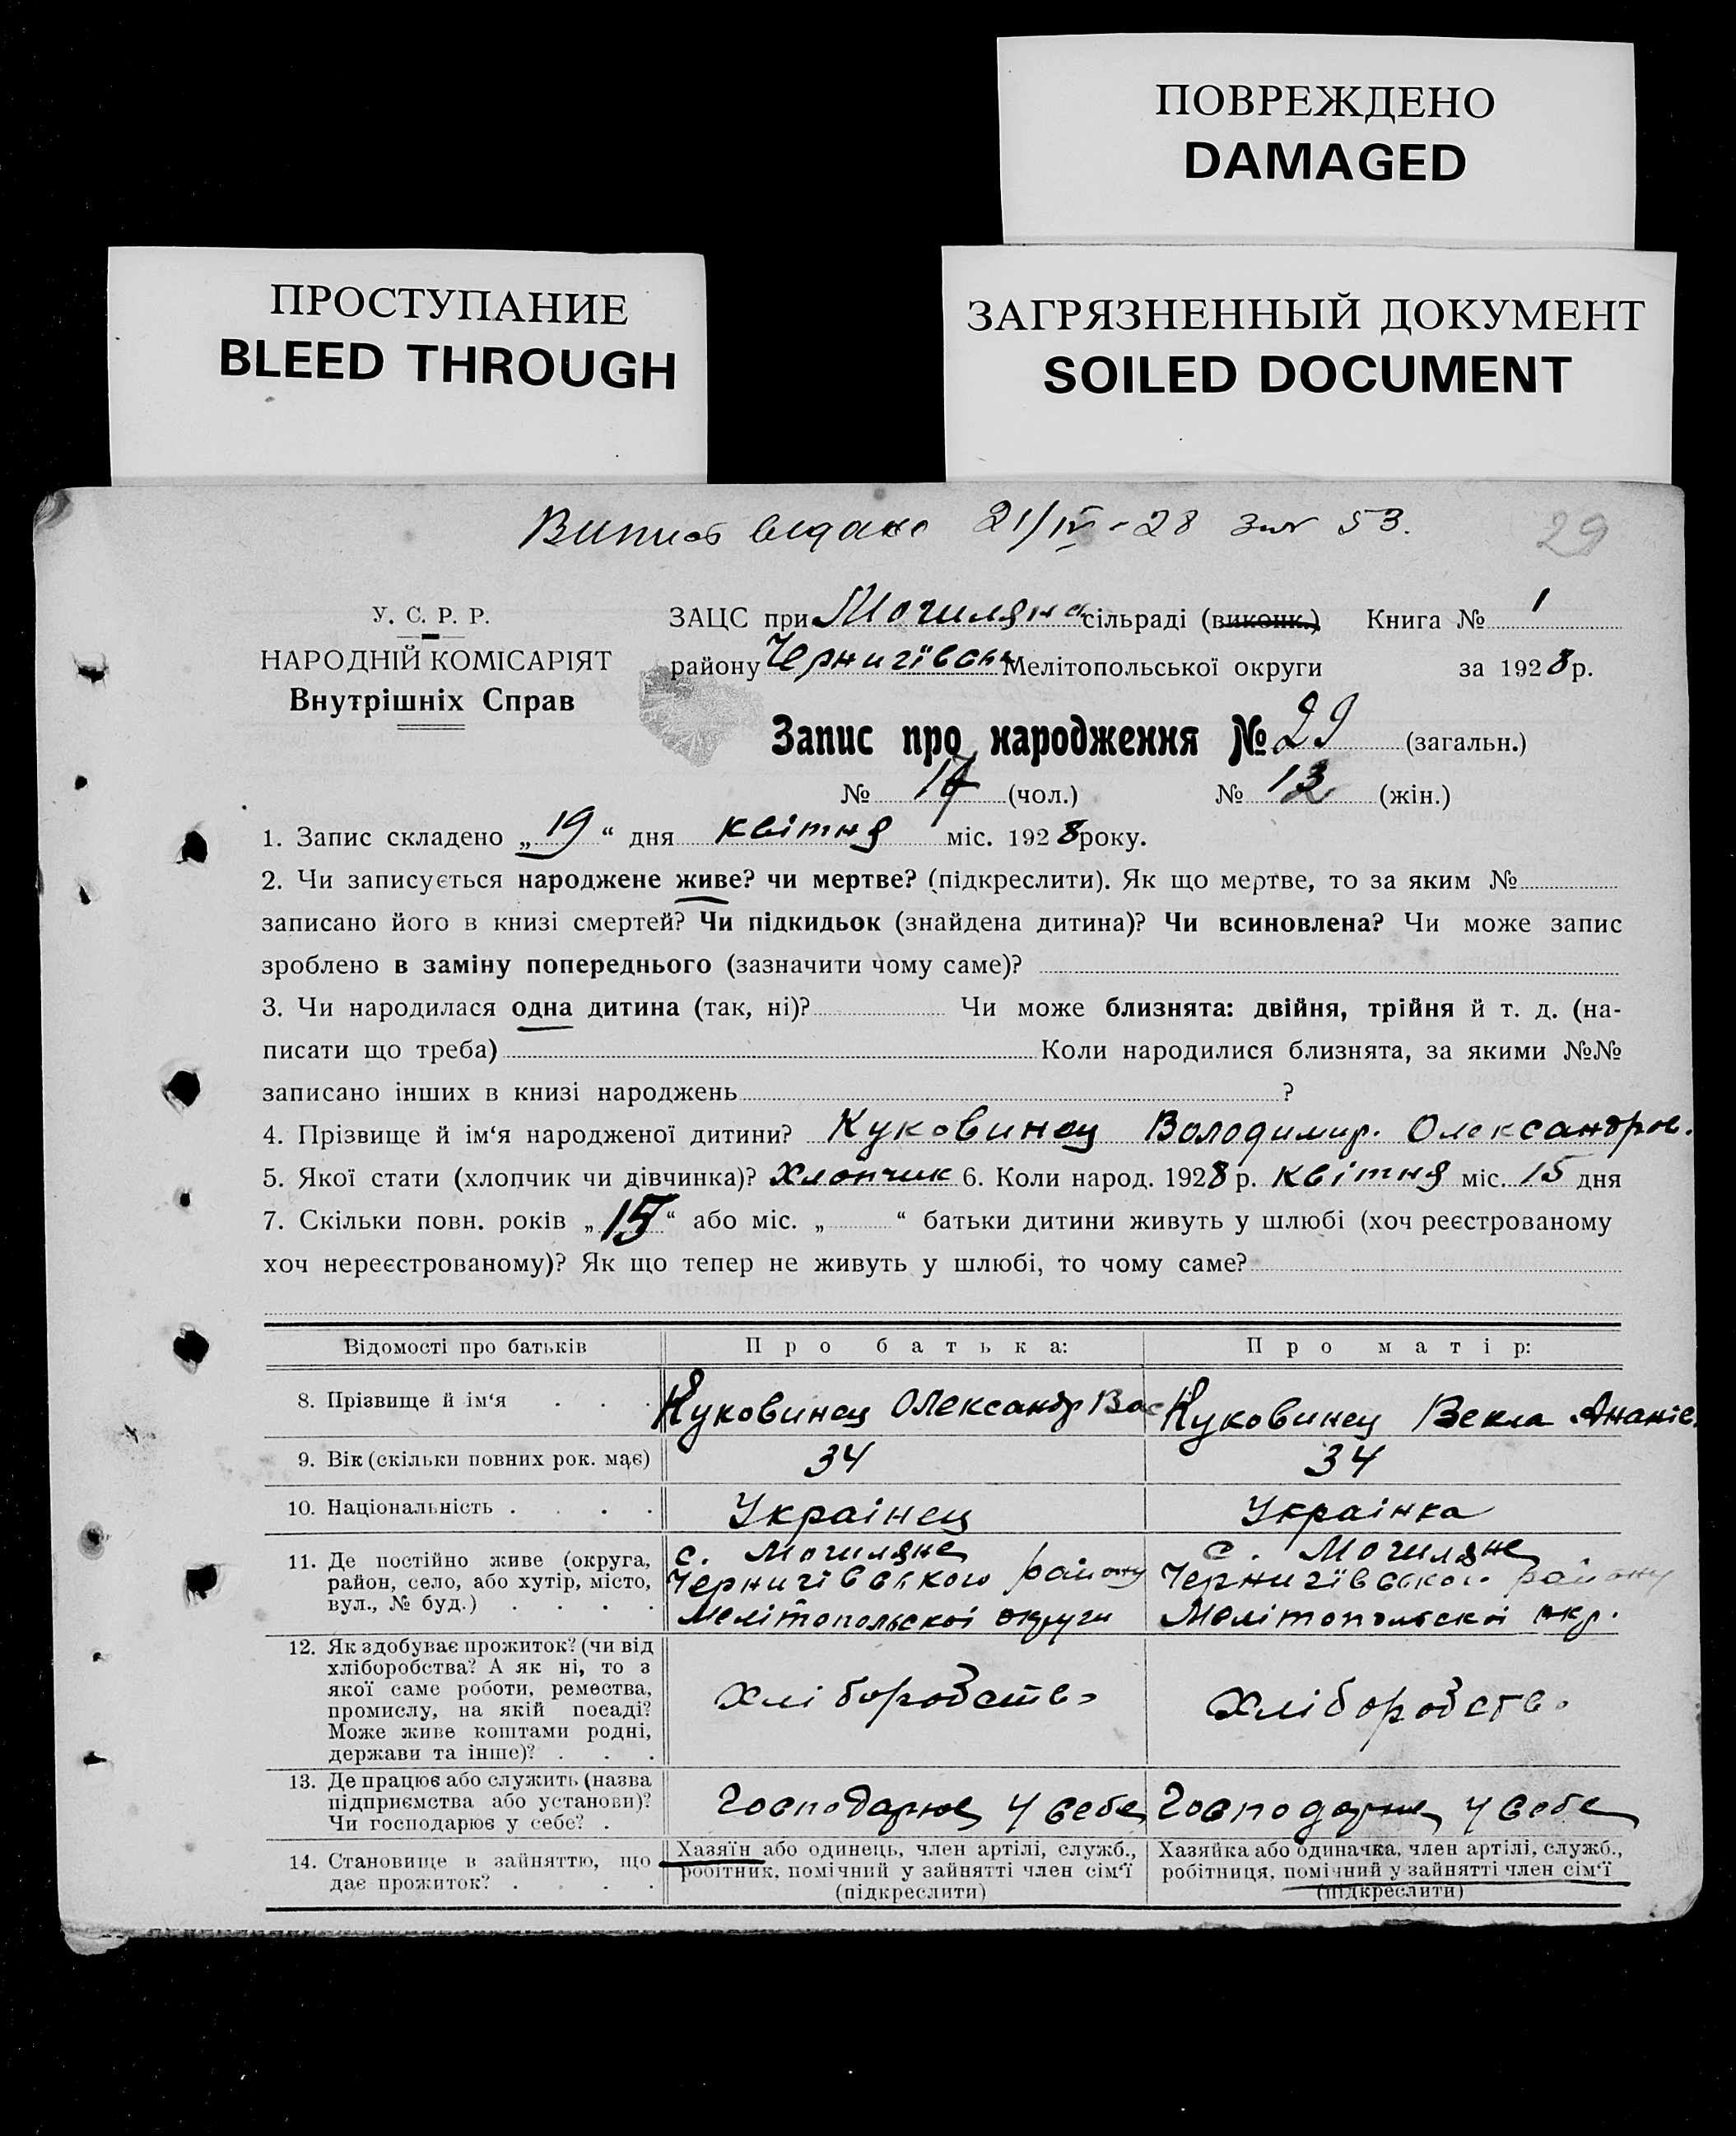 ПОВРЕЖДЕНО
DAMAGED
ПРОСТУПАНИЕ
BLEED THROUGH
ЗАГРЯЗНЕННЫЙ ДОКУМЕНТ
SOILED DOCUMENT
21/IV-28 53.
29
У. С. Р. Р.
НАРОДНІЙ КОМІСАРІЯТ
Внутрішніх Справ
ЗАЦС при Могиляна сільраді (виконк.) Книга № 1
району Чернигівськ Мелітопольської округи за 1928 р.
Запис про народження № 29 (загальн.)
№ 17 (чол.) № 12 (жін.)
1. Запис складено „19“ дня квітня міс. 1928 року.
2. Чи записується народжене живе? чи мертве? (підкреслити). Як що мертве, то за яким №
записано його в книзі смертей? Чи підкидьок (знайдена дитина)? Чи всиновлена? Чи може запис
зроблено в заміну попереднього (зазначити чому саме)?
3. Чи народилася одна дитина (так, ні)? Чи може близнята: двійня, трійня й т. д. (на-
писати що треба) Коли народилися близнята, за якими №№
записано інших в книзі народжень ?
4. Прізвище й ім‘я народженої дитини? Куковинец Володимир. Олександров.
5. Якої стати (хлопчик чи дівчинка)? Хлопчик 6. Коли народ. 1928 р. квітня міс. 15 дня
7. Скільки повн. років „15“ або міс. „ “ батьки дитини живуть у шлюбі (хоч реєстрованому
хоч нереєстрованому)? Як що тепер не живуть у шлюбі, то чому саме?
Відомості про батьків Про батька: Про матір:
8. Прізвище й ім‘я . . . Куковинец Олександр Вас Куковинец Векла Ананіе.
9. Вік (скільки повних рок. має) 34 34
10. Національність . . . . Украінец Украінка
11. Де постійно живе (округа, район, село, або хутір, місто, вул., № буд.) . . . .
с. Могиляне Чернигівського району Мелітопольскоі округи
с. Могиляне Чернигївського району Мелітопольскоі окр.
12. Як здобуває прожиток? (чи від хліборобства? А як ні, то з якої саме роботи, ремества, промислу, на якій посаді? Може живе коштами родні, держави та інше)? . . .
Хліборобство
Хліборобство
13. Де працює або служить (назва підприємства або установи)? Чи господарює у себе? .
Господарює у себе
Господарює у себе
14. Становище в зайняттю, що дає прожиток? . . . .
Хазяїн або одинець, член артілі, служб., робітник, помічний у зайнятті член сім‘ї (підкреслити)
Хазяйка або одиначка, член артілі, служб., робітниця, помічний у зайнятті член сім‘ї (підкреслити)